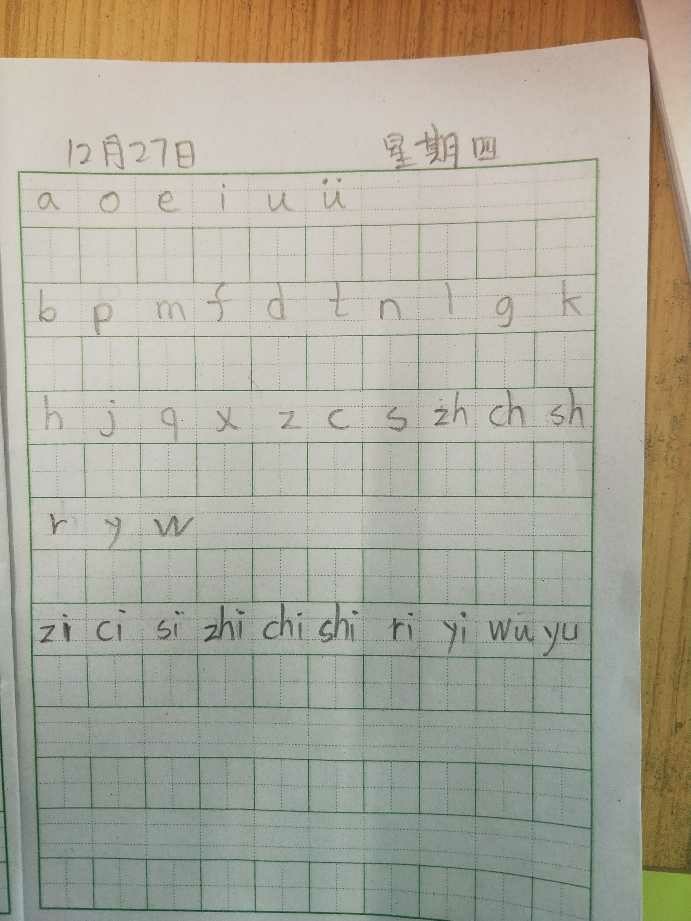 12月27日 星期四
a o e i u ü
b p m f d t n l g k
h j q x z c s zh ch sh
r y w
zi ci si zhi chi shi ri yi wu yu